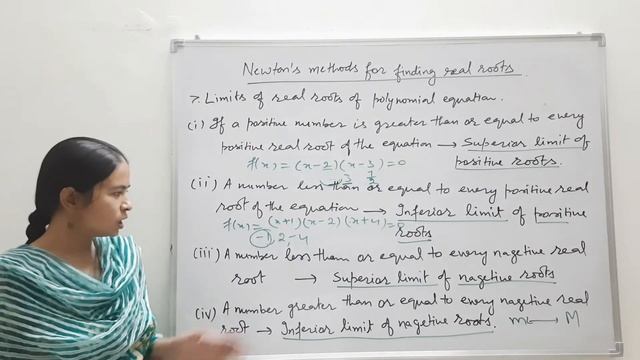 Newton's methods for finding real roots
7. Limits of real roots of polynomial equation.
(i) If a positive number is greater than or equal to every
positive real root of the equation → Superior limit of
f(x) = (x-2)(x-3)=0 positive roots.
(ii) A number less than or equal to every positive real
root of the equation → Inferior limit of positive
f(x) = (x+1)(x-2)(x+4)= roots
-1, 2, -4
(iii) A number less than or equal to every nagetive real
root → Superior limit of nagetive roots
(iv) A number greater than or equal to every nagetive real
root → Inferior limit of nagetive roots. M